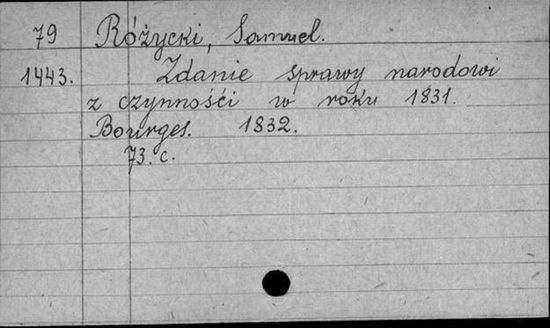 79 Różycki, Samuel.
1443. Zdanie sprawy narodowi
z czynnośći w roku 1831.
Bourges. 1832.
73. c.